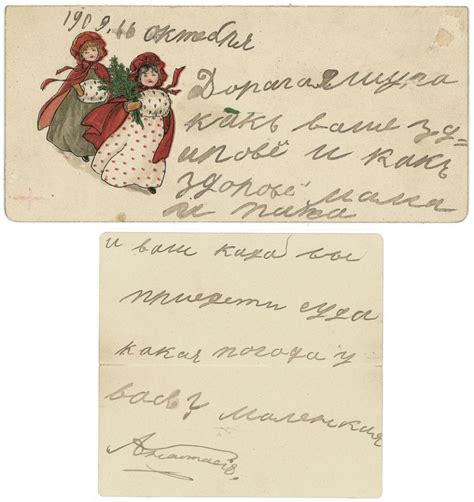 1909. 16 октября
Дорагая
какъ ваше зд-
и какъ
здоровє мама
и папа
и ваш када вы
приедети суда
какая погода у
васъ? маленкия
Анастасія